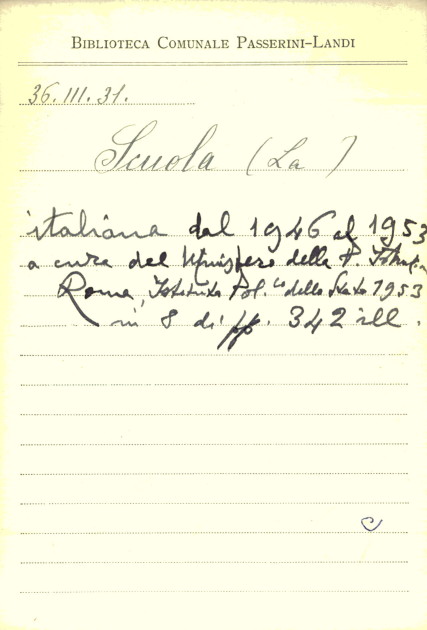 BIBLIOTECA COMUNALE PASSERINI-LANDI
36.III.31.
Scuola (La)
italiana dal 1946 al 1953
a cura del Ministero della P. Istruz.
Roma, Istituto Pol.co dello Stato 1953
in 8 di pp. 342 ill.